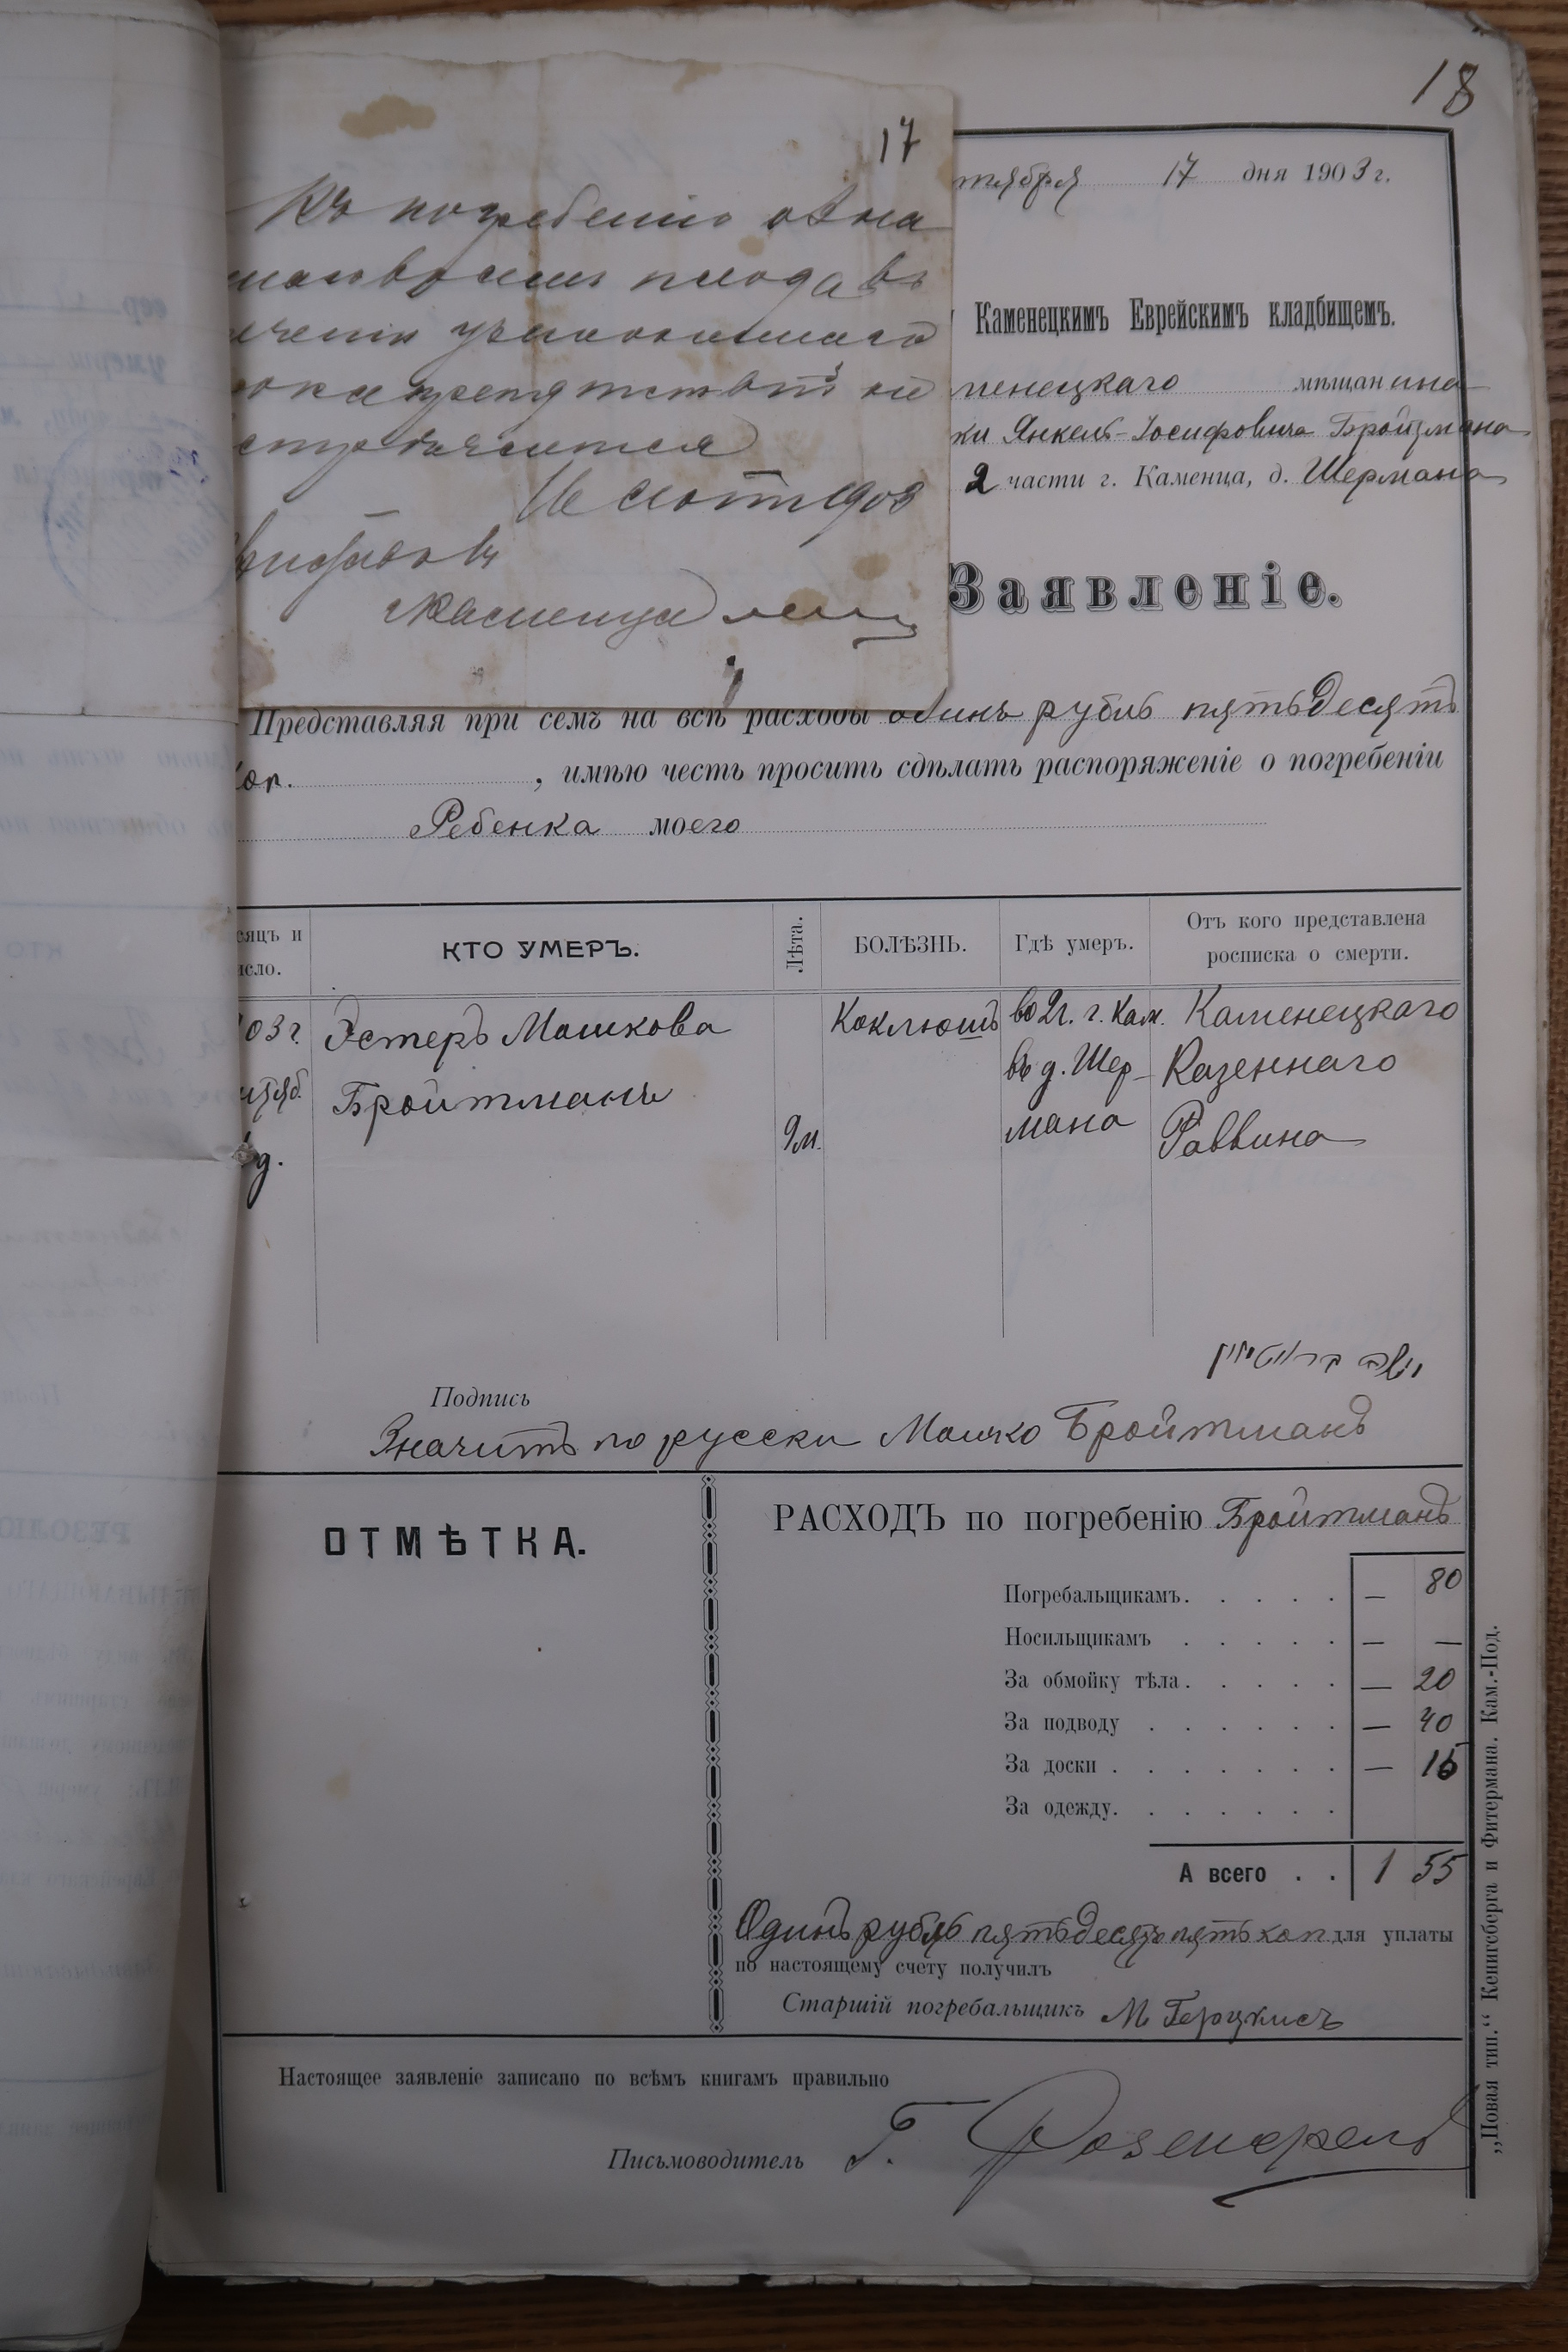 18
17
Къ погребенію озна
ока препятствій не
встрѣчается
Каменецъ
тября 17 дня 1903 г.
Каменецкимъ Еврейскимъ кладбищемъ.
менецкаго мѣщанина
ки Янкель-Іосифовича Бройтмана
2 части г. Каменца, д. Шермана
Заявленіе.
Представляя при семъ на всѣ расходы одинъ рубль пятьдесятъ
коп. , имѣю честь просить сдѣлать распоряженіе о погребеніи
Ребенка моего
сяцъ и исло.
КТО УМЕРЪ.
Лѣта.
БОЛѢЗНЬ.
Гдѣ умеръ.
Отъ кого представлена росписка о смерти.
03 г. Эстеръ Мошкова Коклюшъ во 2 ч. г. Кам. Каменецкаго
Бройтманъ въ д. Шер- Казеннаго
д. 9 м. мана Раввина
Подпись
Значитъ по русски Мошко Бройтманъ
ОТМѢТКА.
РАСХОДЪ по погребенію Бройтманъ
Погребальщикамъ. . . . . — 80
Носильщикамъ . . . . . — —
За обмойку тѣла. . . . . — 20
За подводу . . . . . . — 40
За доски . . . . . . . — 15
За одежду. . . . . . .
А всего . . 1 55
Одинъ рубль пятьдесятъ пять коп для уплаты
по настоящему счету получилъ
Старшій погребальщикъ М
Настоящее заявленіе записано по всѣмъ книгамъ правильно
Письмоводитель Г. Розенфельд
„Новая тип.“ Кенигсберга и Фитермана. Кам.-Под.